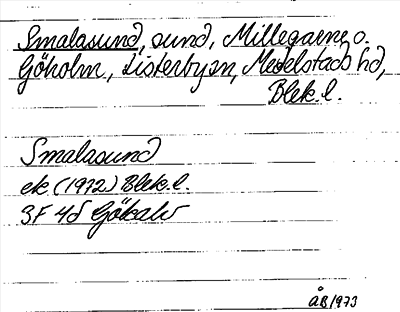 Smalasund, sund, Millegarne o.
Göholm, Listerbysn, Medelstads hd,
Blek. l.
Smalasund
ek. (1972) Blek. l.
3F 4d Gökalv
ÅB 1973